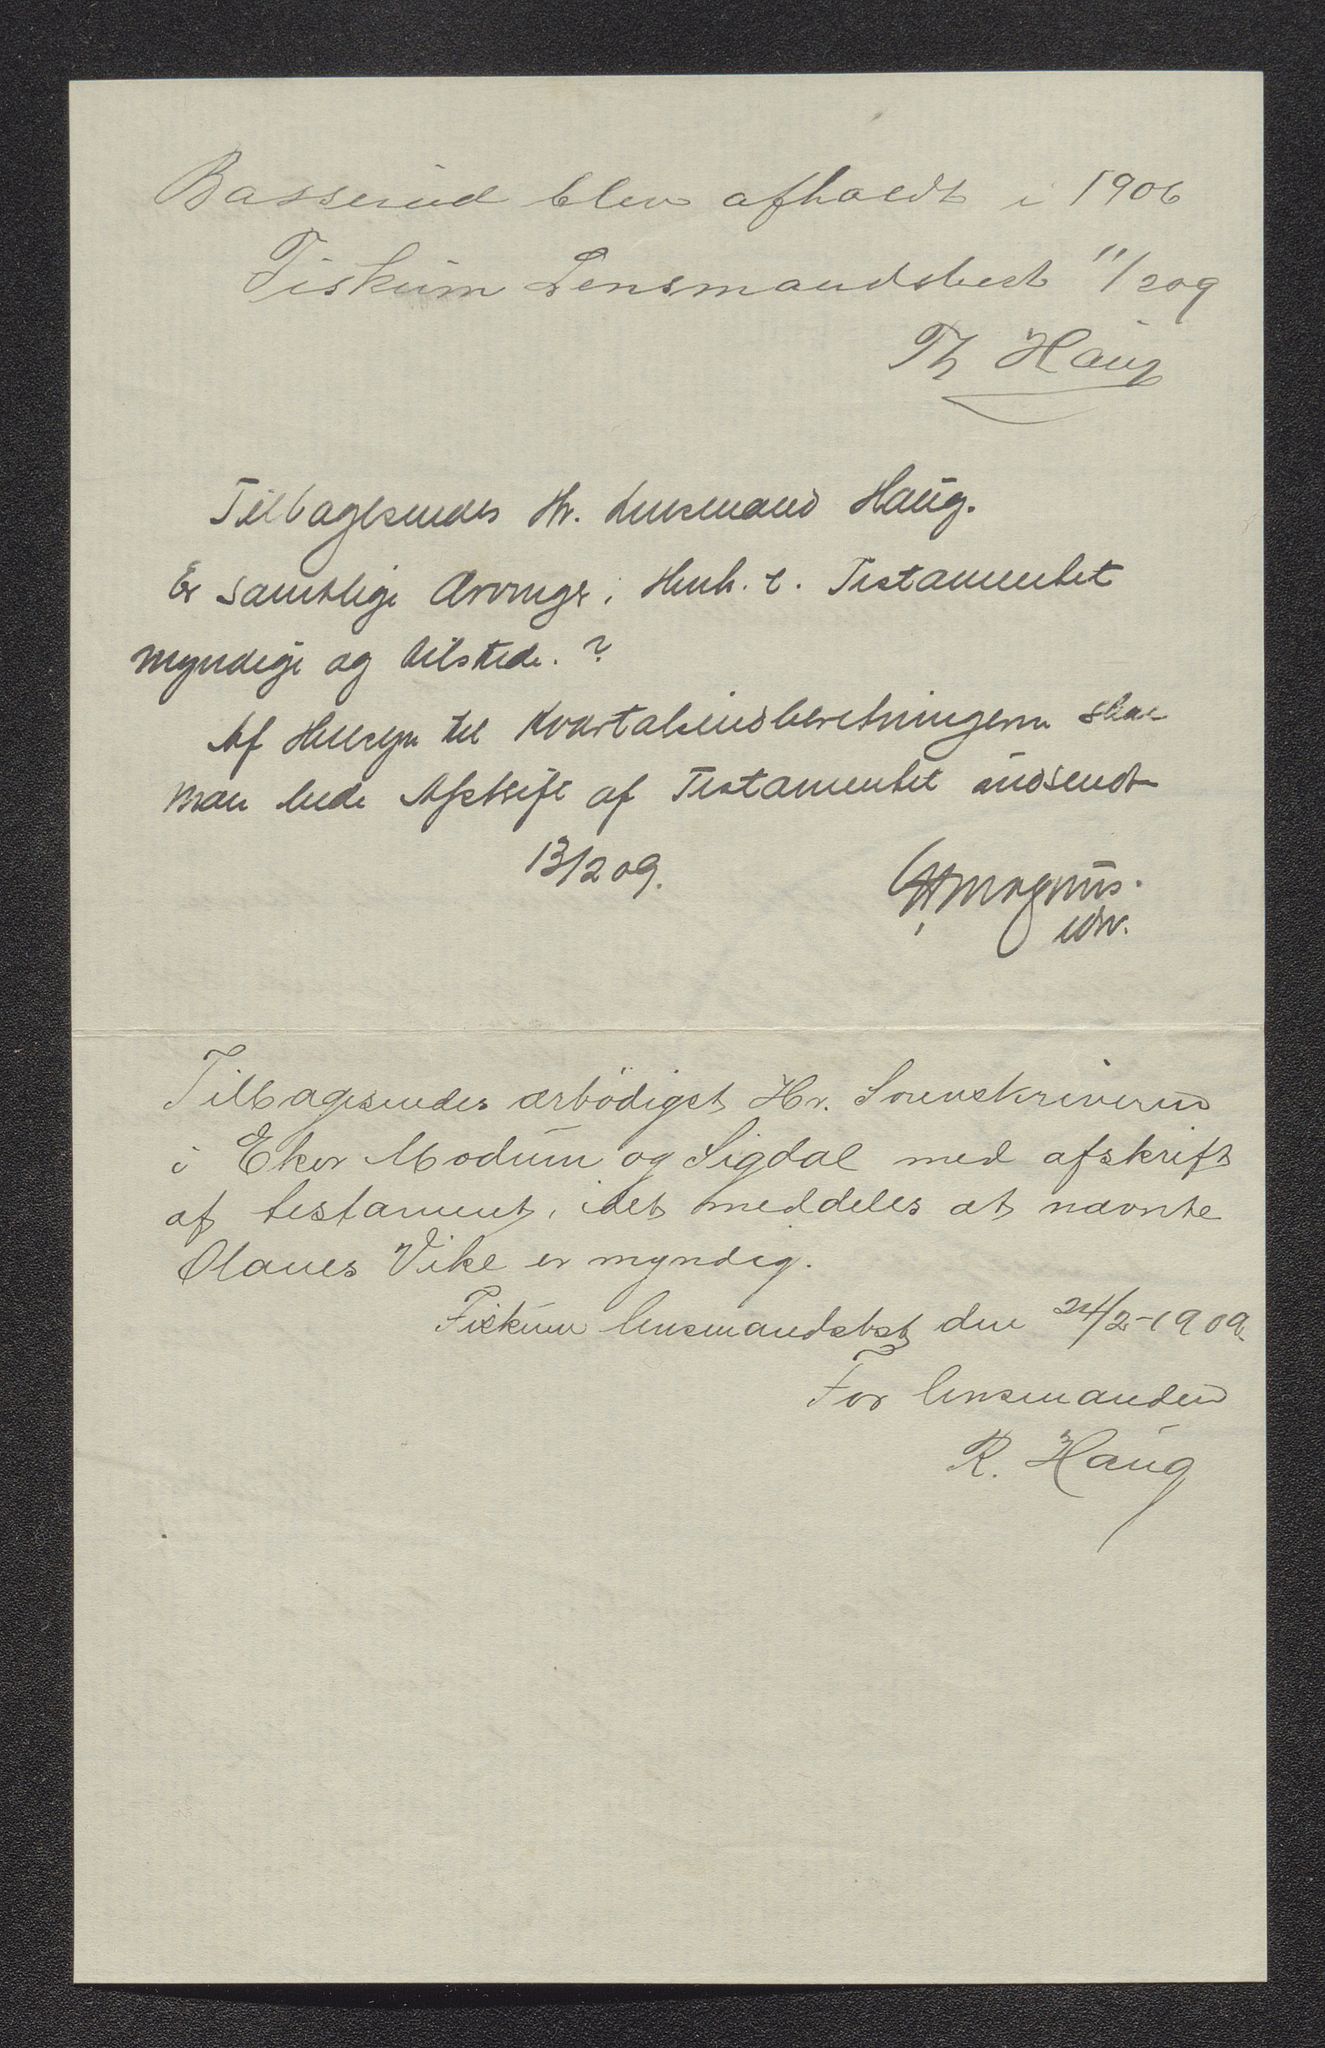 Basserud blev afholdt i 1906
Fiskum Lensmandsbest 11/2 09
Th Haug
Tilbagesendes Hr. Lensmand Haug.
Er samtlige Arvinger i Henh. t. Testamentet
myndige og tilstede.?
Af Hensyn til Kvartalsindberetningerne skal
man bede Afskrift af Testamentet indsendt
13/2 09.
Magnus.
Tilbagesendes ærbödigst Hr. Sorenskriveren
i Eker Modum og Sigdal med afskrift
af testament, idet meddeles at nævnte
Olaues Vike er myndig.
Fiskum lensmandsbst den 24/2-1909
For lensmanden
R. Haug